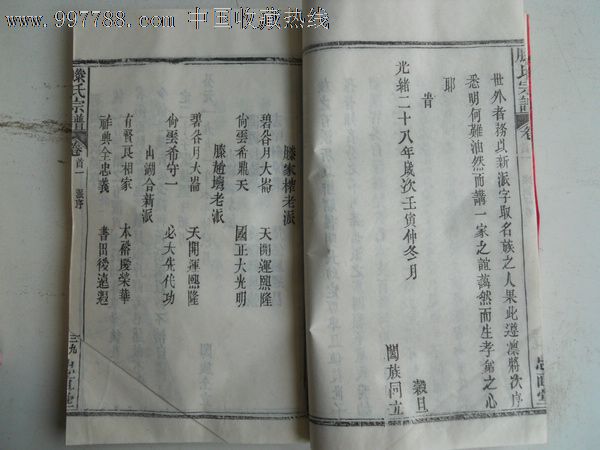 www.997788.com 中国收藏热线
滕氏宗譜 卷
世外者務以新派字取名族之人果此遵凛將次序
悉明何難油然而講一家之誼藹然而生孝弟之心
耶
旹
光緒二十八年歲次壬寅仲冬月 穀旦
闔族同立
忠直堂
滕家樓老派
碧谷月大崙 天開運熙隆
尙雲希鼎天 國正大光明
滕趙塆老派
碧谷月大崙 天開運熙隆
尙雲希守一 必大先代功
合新派
有賢良相家 永裕慶榮華
祥興全忠義 書田後遠
滕氏宗譜 卷首一 派序 三九 忠直堂